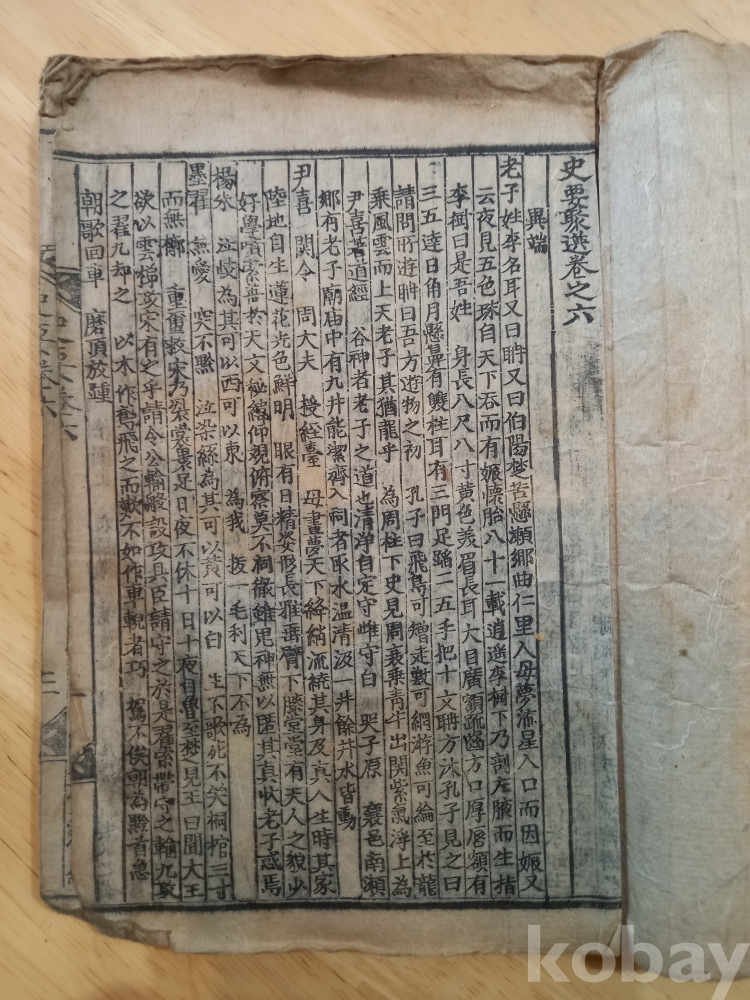 史要聚選卷之六
異端
老子姓李名耳又曰聃又曰伯陽楚苦縣瀬鄉曲仁里人母夢流星入口而因娠又
云夜見五色珠自天下吞而有娠懷胎八十一載逍遙李樹下乃剖左腋而生指
李樹曰是吾姓 身長八尺八寸黃色美眉長耳大目廣額疏齒方口厚唇額有
三五達日角月懸鼻有雙柱耳有三門足蹈二五手把十文聃方沐孔子見之曰
請問所遊聃曰吾方遊物之初 孔子曰飛鳥可矰走獸可網游魚可綸至於龍
乘風雲而上天老子其猶龍乎 為周柱下史見周衰乘靑牛出関紫氣浮上為
尹喜著道經 谷神者老子之道也清淨自定守雌守白 襄邑南瀬
鄉有老子廟庙中有九井能潔齊入祠者取水温清汲一井餘井水皆動
尹喜 関令 周大夫 授經臺 母晝夢天下絳綃流繞其身及真人生時其家
陸地自生蓮花光色鮮明 眼有日精姿形長雅垂臂下膝堂堂有天人之貌少
好學墳素善於天文秘緯仰觀俯察莫不祠徹雖鬼神無以匿其真狀老子感焉
楊朱 泣歧為其可以西可以東 為我 拔一毛利天下不為
墨翟 無愛 突不黔 泣染絲為其可以黃可以白 生不歌死不哭桐棺三寸
而無槨 重繭救宋乃裂裳裹足日夜不休十日十夜自魯至楚見王曰聞大王
欲以雲梯攻宋有之乎請令公輸般設攻具臣請守之於是翟索帶守之輸九攻
之翟九却之 以木作鳶飛之而歎不如作車輗者巧 駕不俟朝為黔首急
朝歌回車 磨頂放踵
kobay